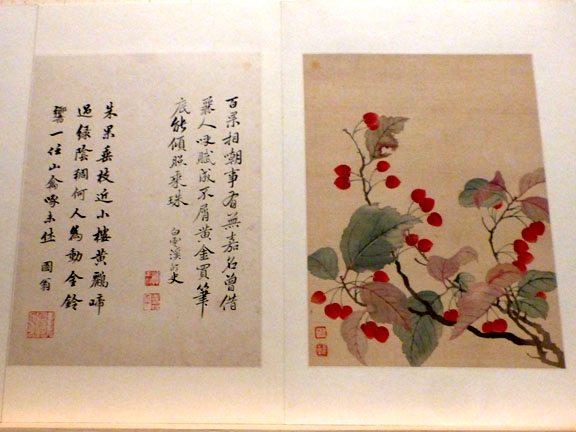 百果相嘲事有無嘉名曾借
人呼賦成不屑黃金買筆
底能傾照乘珠 白雲溪外史
朱果垂枝近小樓黃鸝啼
過綠陰稠何人為動金鈴
響一任山禽啄未休 園翁